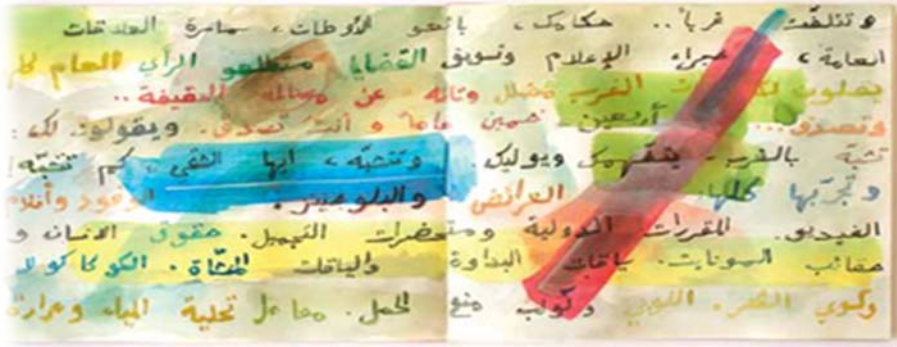 وتتلفّت غرباً.. حكامك، بائعو الأوطان، سامرة العلاقات
العامة، خبراء الإعلام وتسويق القضايا مستطلعو الرأي العام كم
يصلون لك الغرب مضلل وتائه عن رسالته الحقيقة..
وتصدق... أربعين خمسين عاماً وأنت تصدق. ويقولون لك:
تشبّه بالغرب يتفهمك ويواليك. وتتشبّه، أيها الشقي، كم تتشبّه!
وتجرّبها كلها: العرائض والبلوجينز. الوفود وأفلام
الفيديو. المقررات الدولية ومستحضرات التجميل. حقوق الانسان و
حقائب السونايت. ياقات البداوة والياقات المنشّاة. الكوكا كولا
وكوي الشعر. اللوبي وكولب منع الحمل. معامل تحلية المياه ومرارة